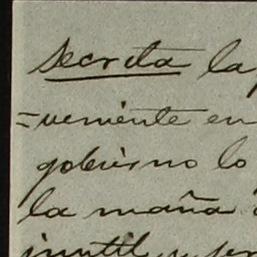 Secreta la
=veniente en
gobierno lo
la maña
inutil